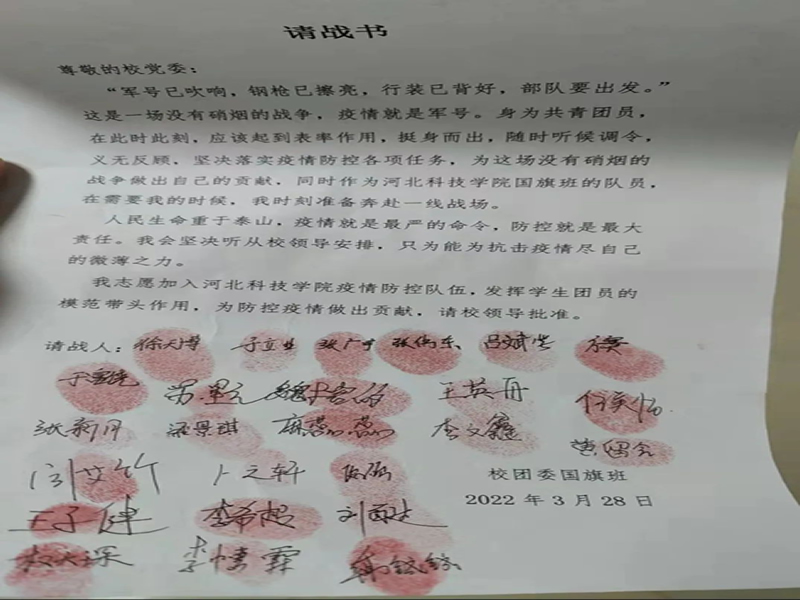 请战书
尊敬的校党委：
“军号已吹响，钢枪已擦亮，行装已背好，部队要出发。”
这是一场没有硝烟的战争，疫情就是军号。身为共青团员，
在此时此刻，应该起到表率作用，挺身而出，随时听候调令，
义无反顾，坚决落实疫情防控各项任务，为这场没有硝烟的
战争做出自己的贡献，同时作为河北科技学院国旗班的队员，
在需要我的时候，我时刻准备奔赴一线战场。
人民生命重于泰山，疫情就是最严的命令，防控就是最大
责任。我会坚决听从校领导安排，只为能为抗击疫情尽自己
的微薄之力。
我志愿加入河北科技学院疫情防控队伍，发挥学生团员的
模范带头作用，为防控疫情做出贡献，请校领导批准。
请战人：徐天博 于立业 吕斌生
王英冉
张新月 梁景琪
闫艾竹 卜之轩
校团委国旗班
2022 年 3 月 28 日
王子健 李希超
李情霖